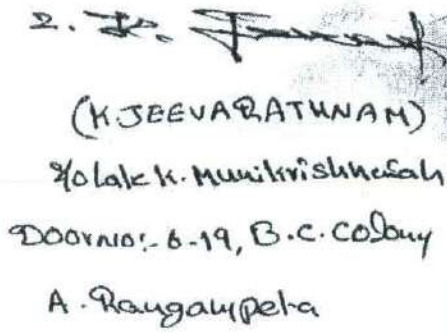 2. K.
(K.JEEVARATHNAM)
S/o Late K. Munikrishnaiah
DOORNO:- 6-19, B.C. Colony
A. Rangampeta